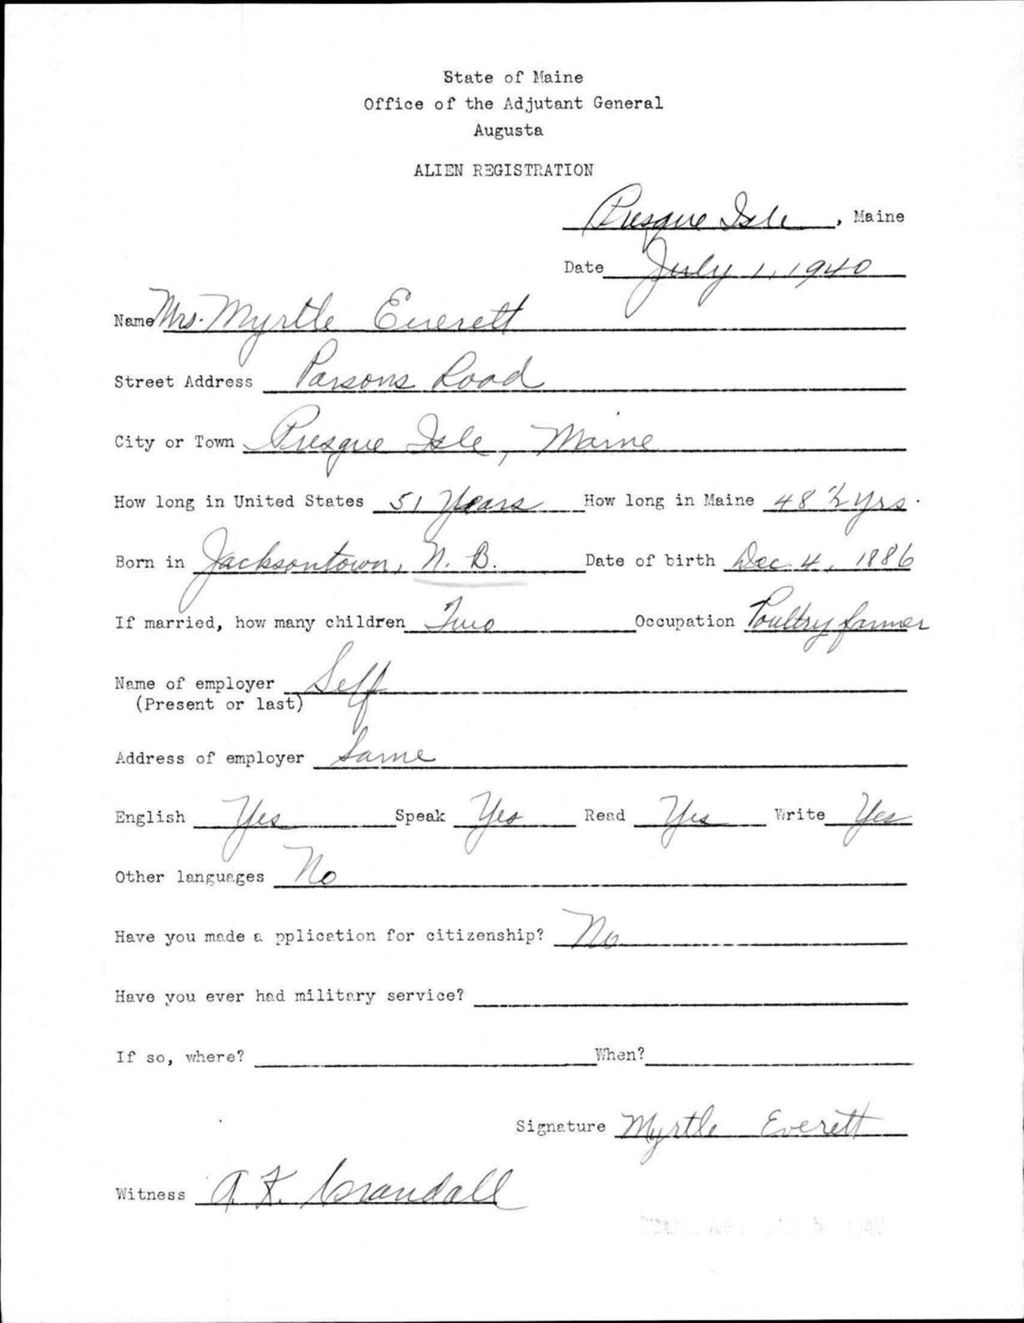 State of Maine
Office of the Adjutant General
Augusta
ALIEN REGISTRATION
Presque Isle, Maine
Date July 1, 1940
Name Mrs. Myrtle Everett
Street Address Parsons Road
City or Town Presque Isle, Maine
How long in United States 51 Years How long in Maine 48 1/2 yrs.
Born in Jacksontown, N. B. Date of birth Dec. 4, 1886
If married, how many children Two Occupation Poultry farmer
Name of employer Self
(Present or last)
Address of employer Same
English Yes Speak Yes Read Yes Write Yes
Other languages No
Have you made a pplication for citizenship? No
Have you ever had military service?
If so, where? When?
Signature Myrtle Everett
Witness A. F. Crandall